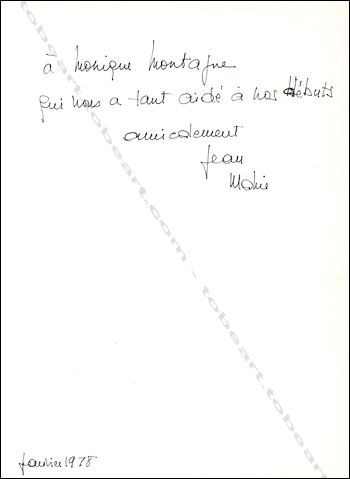 à Monique Montagne
qui nous a tant aidé à nos débuts
amicalement
Jean
Marie
janvier 1978
tobeart.com - tobeart.com - tobeart